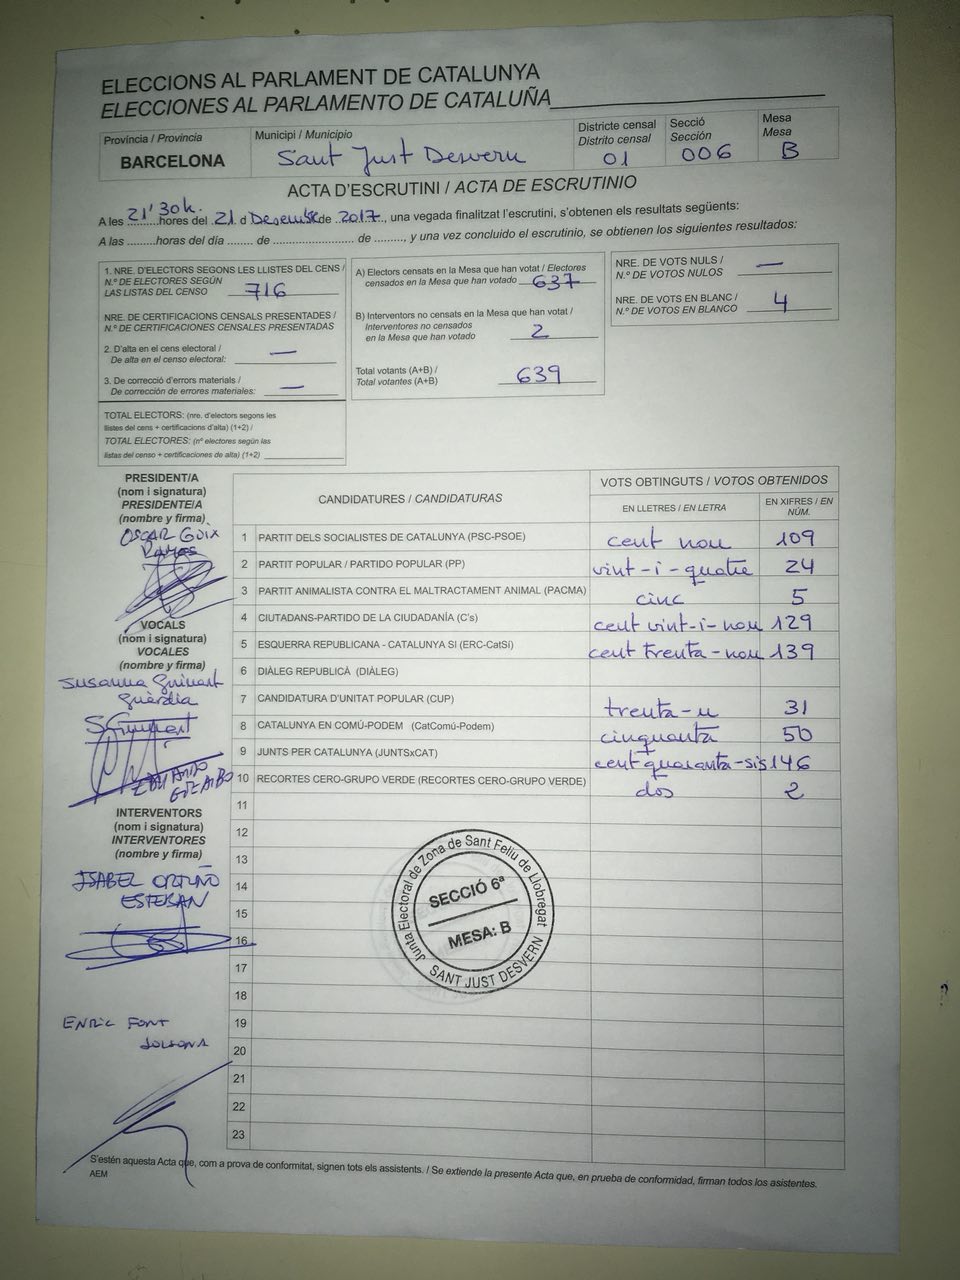 ELECCIONS AL PARLAMENT DE CATALUNYA
ELECCIONES AL PARLAMENTO DE CATALUÑA
Província / Provincia
BARCELONA
Municipi / Municipio
Sant Just Desvern
Districte censal
Distrito censal
01
Secció
Sección
006
Mesa
Mesa
B
ACTA D'ESCRUTINI / ACTA DE ESCRUTINIO
A les 21'30h. hores del 21 d Desembre de 2017, una vegada finalitzat l'escrutini, s'obtenen els resultats següents:
A las .........horas del día ........ de ........................ de ........., y una vez concluido el escrutinio, se obtienen los siguientes resultados:
1. NRE. D'ELECTORS SEGONS LES LLISTES DEL CENS /
N.º DE ELECTORES SEGÚN
LAS LISTAS DEL CENSO 716
NRE. DE CERTIFICACIONS CENSALS PRESENTADES /
N.º DE CERTIFICACIONES CENSALES PRESENTADAS
2. D'alta en el cens electoral /
De alta en el censo electoral: —
3. De correcció d'errors materials /
De corrección de errores materiales: —
TOTAL ELECTORS: (nre. d'electors segons les
llistes del cens + certificacions d'alta) (1+2) /
TOTAL ELECTORES: (nº electores según las
listas del censo + certificaciones de alta) (1+2)
A) Electors censats en la Mesa que han votat / Electores
censados en la Mesa que han votado 637
B) Interventors no censats en la Mesa que han votat /
Interventores no censados
en la Mesa que han votado 2
Total votants (A+B) /
Total votantes (A+B) 639
NRE. DE VOTS NULS /
N.º DE VOTOS NULOS —
NRE. DE VOTS EN BLANC /
N.º DE VOTOS EN BLANCO 4
PRESIDENT/A
(nom i signatura)
PRESIDENTE/A
(nombre y firma)
OSCAR GUIX
Ramos
VOCALS
(nom i signatura)
VOCALES
(nombre y firma)
Susanna Guinart
Guàrdia
SGuinart
INTERVENTORS
(nom i signatura)
INTERVENTORES
(nombre y firma)
ISABEL ORTUÑO
ESTEBAN
ENRIC FONT
SOLSONA
CANDIDATURES / CANDIDATURAS
VOTS OBTINGUTS / VOTOS OBTENIDOS
EN LLETRES / EN LETRA
EN XIFRES / EN NÚM.
1 PARTIT DELS SOCIALISTES DE CATALUNYA (PSC-PSOE) cent nou 109
2 PARTIT POPULAR / PARTIDO POPULAR (PP) vint-i-quatre 24
3 PARTIT ANIMALISTA CONTRA EL MALTRACTAMENT ANIMAL (PACMA) cinc 5
4 CIUTADANS-PARTIDO DE LA CIUDADANÍA (C's) cent vint-i-nou 129
5 ESQUERRA REPUBLICANA - CATALUNYA SI (ERC-CatSí) cent trenta-nou 139
6 DIÀLEG REPUBLICÀ (DIÀLEG)
7 CANDIDATURA D'UNITAT POPULAR (CUP) trenta-u 31
8 CATALUNYA EN COMÚ-PODEM (CatComú-Podem) cinquanta 50
9 JUNTS PER CATALUNYA (JUNTSxCAT) cent quaranta-sis 146
10 RECORTES CERO-GRUPO VERDE (RECORTES CERO-GRUPO VERDE) dos 2
11
12
13
14
15
16
17
18
19
20
21
22
23
Junta Electoral de Zona de Sant Feliu de Llobregat
SECCIÓ 6ª
MESA: B
SANT JUST DESVERN
S'estén aquesta Acta que, com a prova de conformitat, signen tots els assistents. / Se extiende la presente Acta que, en prueba de conformidad, firman todos los asistentes.
AEM